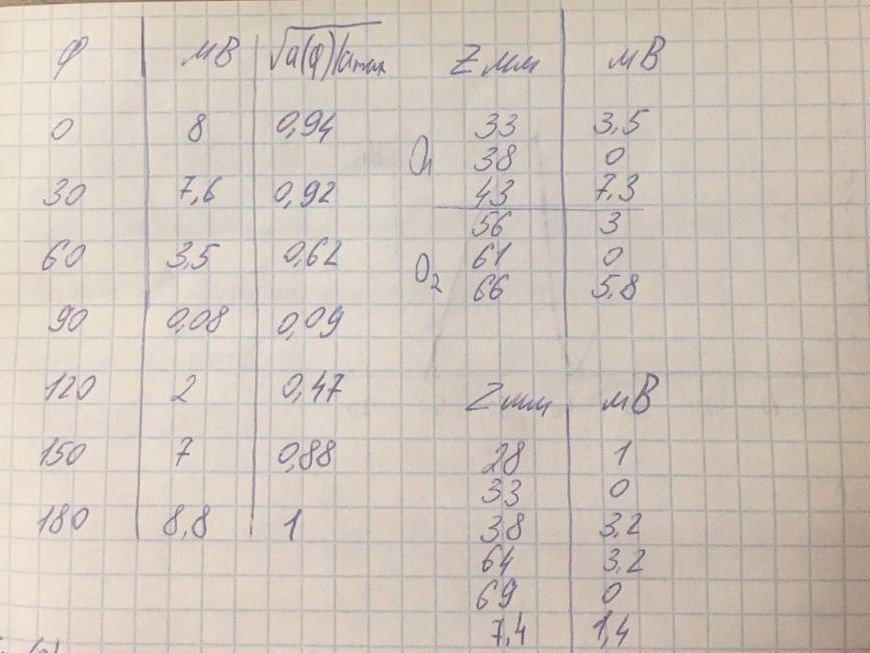 φ мВ √a(φ)/amax
0 8 0,94
30 7,6 0,92
60 3,5 0,62
90 0,08 0,09
120 2 0,47
150 7 0,88
180 8,8 1
Z мм мВ
33 3,5
O1 38 0
43 7,3
56 3
O2 61 0
66 5,8
Z мм мВ
28 1
33 0
38 3,2
64 3,2
69 0
7,4 1,4